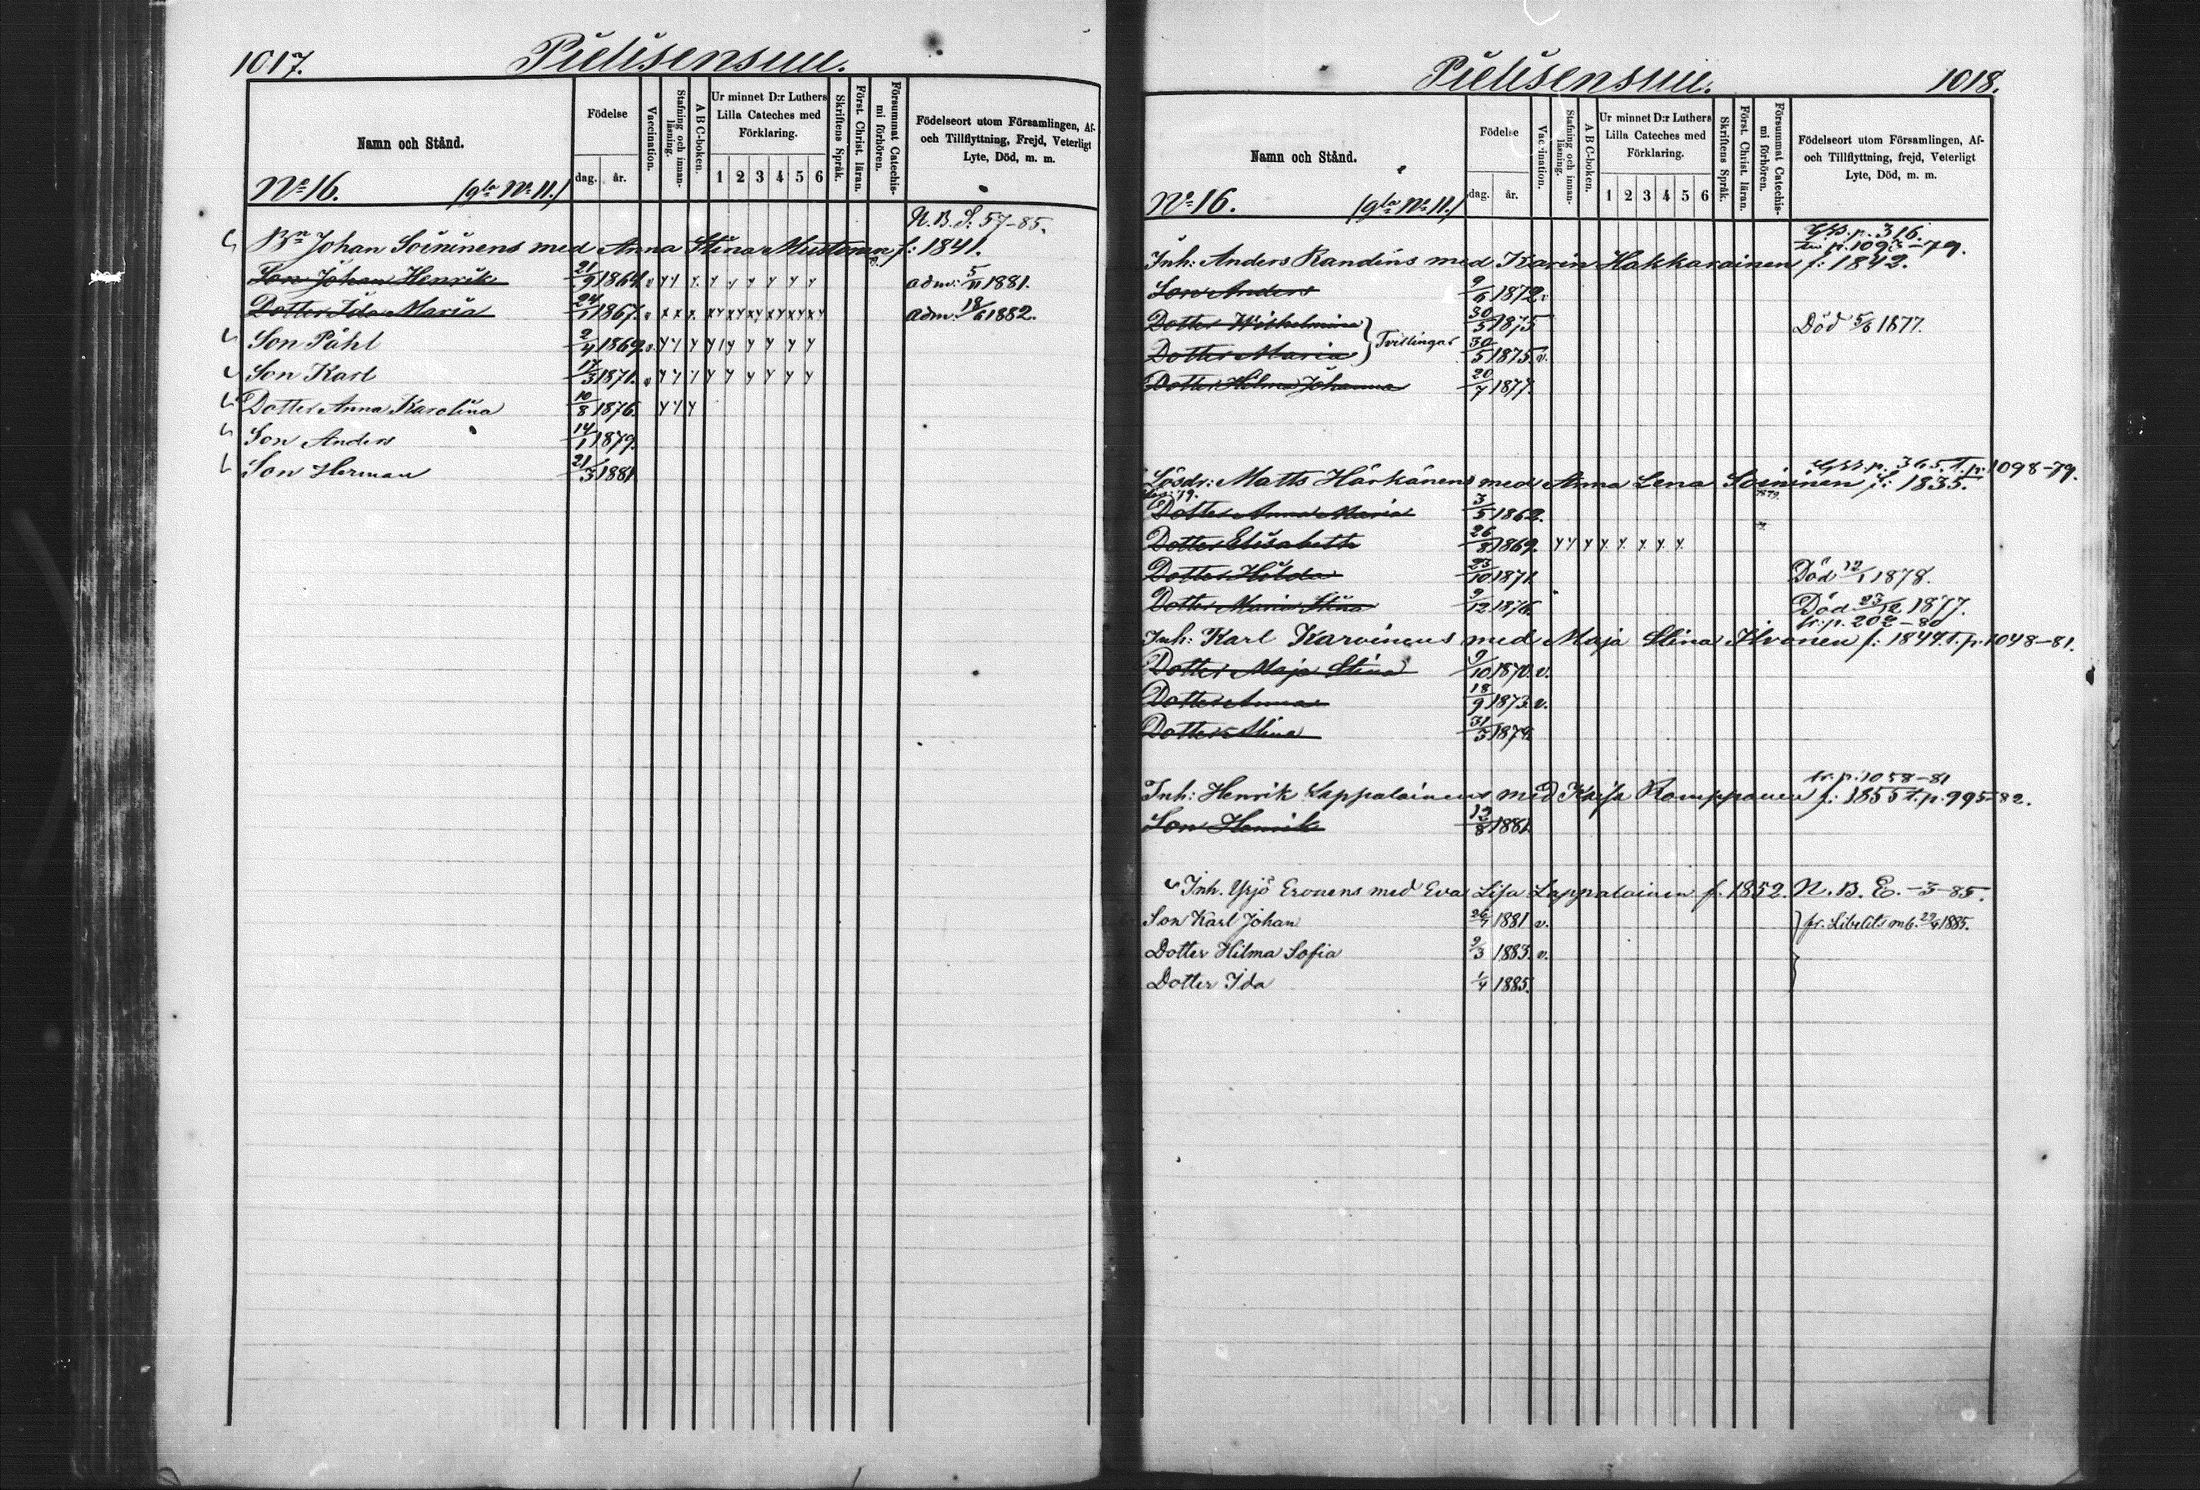 1017.
Pielisensuu.
Namn och Stånd.
Födelse
dag. år.
Vaccination.
Stafning och innanläsning.
A B C-boken.
Ur minnet D:r Luthers Lilla Cateches med Förklaring.
1 2 3 4 5 6
Skriftens Språk.
Först. Christ. läran.
Försummat Catechismi förhören.
Födelseort utom Församlingen, Af- och Tillflyttning, Frejd, Veterligt Lyte, Död, m. m.
No 16. (gla No 11.)
N. B. S. 57-85.
Bn Johan Soininens med Anna Stina Mustonen f: 1841.
Son Johan Henrik 21/9 1864. v y y y y y y y y y adm: 5/6 1881.
Dotter Ida Maria 24/1 1867. v x x x xy xy xy xy xy xy adm. 18/6 1882.
Son Påhl 2/4 1869. v. y y y y y y y y y
Son Karl 17/3 1871. v y y y y y y y y y
Dotter Anna Karolina 10/8 1876. y y y
Son Anders 14/1 1879.
Son Herman 21/3 1881.
Pielisensuu.
1018.
Namn och Stånd.
Födelse
dag. år.
Vaccination.
Stafning och innanläsning.
A B C-boken.
Ur minnet D:r Luthers Lilla Cateches med Förklaring.
1 2 3 4 5 6
Skriftens Språk.
Först. Christ. läran.
Försummat Catechismi förhören.
Födelseort utom Församlingen, Af- och Tillflyttning, frejd, Veterligt Lyte, Död, m. m.
No 16. (gla No 11.)
p. 316.
p. 1093-79.
Inh: Anders Randins med Karin Hakkarainen f: 1842.
Son Anders 9/6 1872. v
Dotter Wilhelmina 30/5 1875 Död 5/6 1877.
Tvillingar
Dotter Maria 30/5 1875. v.
Dotter Hilma Johanna 20/7 1877.
p. 365. T. p. 1098-79.
Lösdr: Matts Härkänens med Anna Lena Soininen f: 1835.
Dotter Anna Maria 3/5 1862.
Dotter Elisabeth 26/8 1869. y y y y y y y y
Dotter Hilda 23/10 1871. Död 12/1 1878.
Dotter Maria Stina 9/12 1876. Död 23/12 1877.
tr. p. 202-80
Inh: Karl Karvinens med Maja Stina Ilvonen f: 1847. T. p. 1048-81.
Dotter Maja Stina 9/10 1870. v.
Dotter Anna 18/9 1873. v.
Dotter Alina 31/5 1879.
tr. p. 1058-81
Inh: Henrik Lappalainens med Kaisa Romppanen f: 1855 T. p. 995-82.
Son Henrik 12/8 1881.
Inh. Yrjö Eronens med Eva Lisa Lappalainen f. 1852. N. B. E. -3-85.
Son Karl Johan 26/7 1881 v. fr. Libelits mb. 22/4 1885.
Dotter Hilma Sofia 9/3 1883. v.
Dotter Ida 1/4 1885.